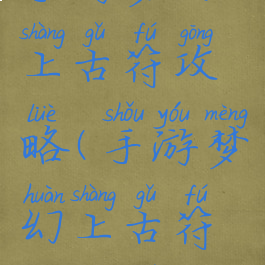 shàng gǔ fú gōng
上古符攻
lüè shǒu yóu mèng
略(手游梦
huàn shàng gǔ fú
幻上古符